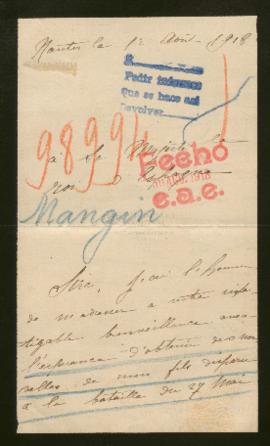 Nantes le 12 Août 1918
Pedir informes
Que se hace así
Devolver
98994
à Sa Majesté le
roi d'Espagne
Fecho
30 AGO. 1918
e.a.e.
Mangin
Sire, j'ai l'honneur
de m'adresser à votre infa-
tigable bienveillance avec
l'espérance d'obtenir des nou-
velles de mon fils disparu
à la bataille du 27 Mai